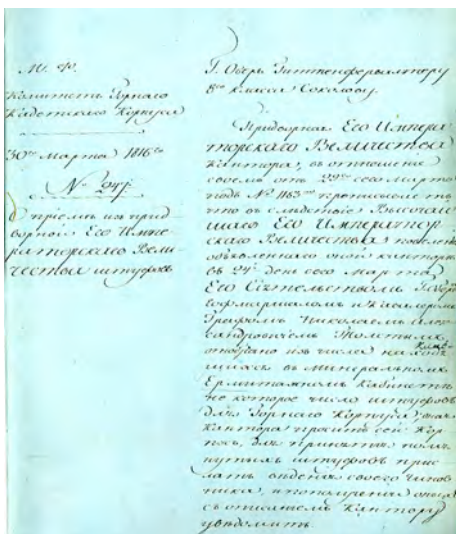 М. Ф.
Комитетъ Горнаго
Кадетскаго Корпуса
30го Марта 1816го
№ 247
О прiемѣ изъ прид
ворной Его Импе
раторскаго Вели
чества штуфовъ
Г. Оберъ Гиттенфервалтеру
8го класса Соколову.
Придворная Его Импера
торскаго Величества
Кантора, въ отношенiе
своемъ отъ 29го сего Марта
подъ № 1183мъ прописываетъ
что въ слѣдствiе Высочай
шаго Его Император
скаго Величества повеленiя
объявленнаго оной канторѣ
въ 24й день сего Марта
Его Сiятельствомъ Оберъ
Гофмаршаломъ и Кавалеромъ
Графомъ Николаемъ Алек
сандровичемъ Толстымъ,
отобрано изъ числа находя
щихся въ Минеральномъ
Эрмитажномъ Кабинетѣ
не которое число штуфовъ
для Горнаго Корпуса, и какъ
Кантора проситъ сей Кор
пусъ, для принятiя помя
нутыхъ штуфовъ прис
лать въ оную своего чинов
ника, и о полученiи оныхъ
съ описанiемъ Кантору
увѣдомить.